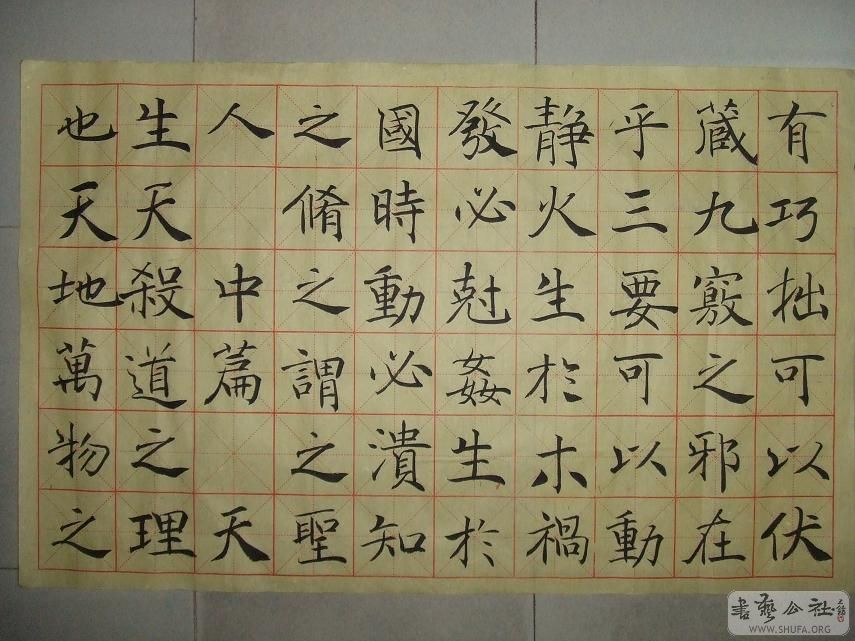 有巧拙可以伏
藏九竅之邪在
乎三要可以動
静火生於木禍
發必尅姦生於
國時動必潰知
之脩之謂之聖
人 中篇 天
生天殺道之理
也天地萬物之
書藝公社
WWW.SHUFA.ORG